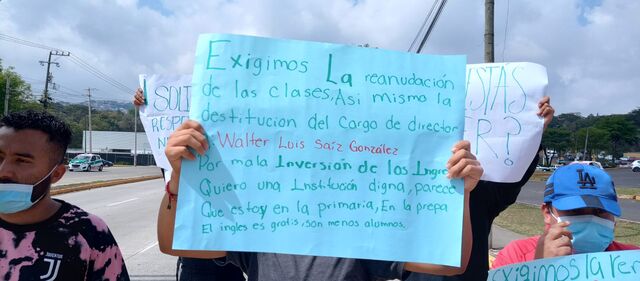 Exigimos La reanudación
de las clases, Asi mismo la
destitución del Cargo de director
: Walter Luis Saíz González
Por mala Inversión de los Ingre
Quiero una Institución digna, parece
Que estoy en la primaria, En la prepa
El ingles es gratis, son menos alumnos.
SOLI
RESP
STAS
ER?
LA
Exigimos la ren
JJ
JUVENTUS